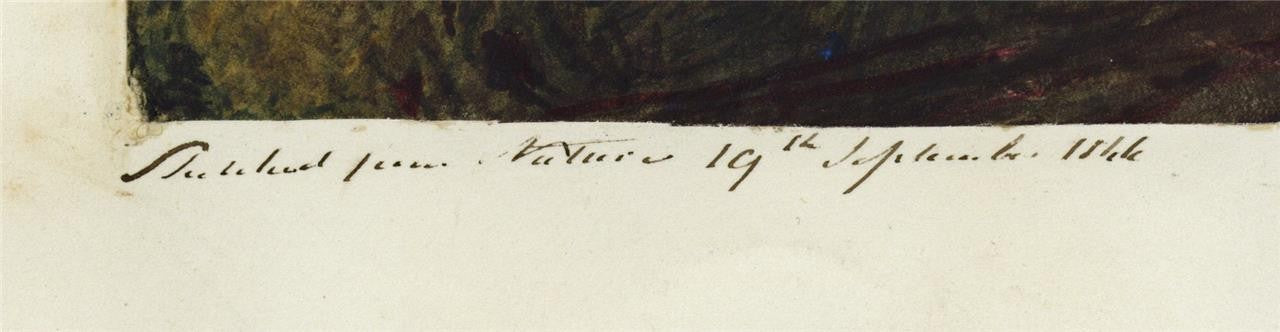 Sketched from Nature 19th September 1844